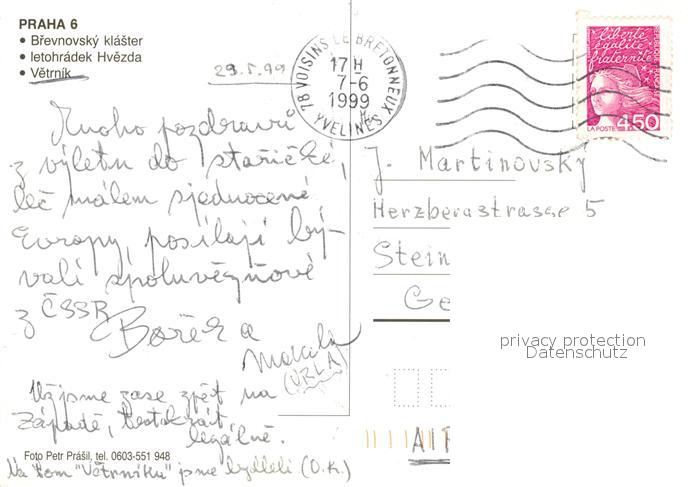 PRAHA 6
• Břevnovský klášter
• letohrádek Hvězda
• Větrník
29.5.99
78 VOISINS LE BRETONNEUX
17H
7-6
1999
YVELINES
liberté
égalité
fraternité
LA POSTE
4,50
Mnoho pozdravů
z výletu do stařičké,
leč málem sjednocené
Evropy, posílají bý-
valí spoluvězňové
z ČSSR
Bořek a
Markéta
(URLA)
Už jsme zase zpět na
Západě, tentokrát
legálně.
Foto Petr Prášil, tel. 0603-551 948
Na tom "Větrníku" jsme bydleli (O.K.)
J. Martinovský
Herzbergstrasse 5
Stein
Ge
privacy protection
Datenschutz
AIR